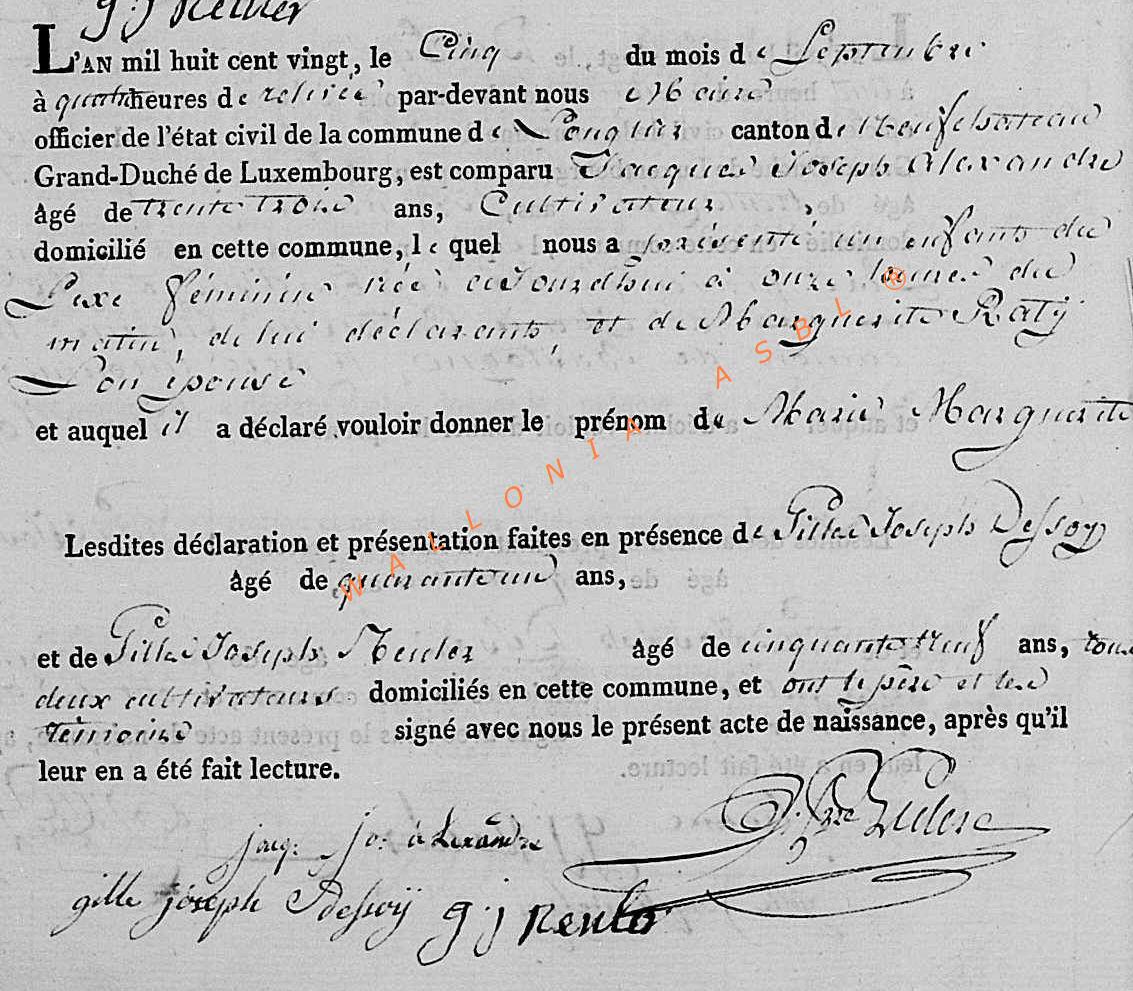 g j Renler
L'AN mil huit cent vingt, le Cinq du mois de Septembre
à quatre heures de relevée par-devant nous
officier de l'état civil de la commune de Longlier canton de Neufchateau
Grand-Duché de Luxembourg, est comparu Jacques Joseph Alexandre
âgé de trente trois ans, Cultivateur,
domicilié en cette commune, le quel nous a présenté un enfant du
Sexe féminin née aujourdhui à onze heures du
matin, de lui déclarant, et de Marguerite Raty
Son épouse
et auquel il a déclaré vouloir donner le prénom de Marie Marguerite
Lesdites déclaration et présentation faites en présence de Gille Joseph Dessoy
âgé de quarante un ans,
et de Gille Joseph Renler âgé de cinquante neuf ans, tous
deux cultivateurs domiciliés en cette commune, et ont le père et les
témoins signé avec nous le présent acte de naissance, après qu'il
leur en a été fait lecture.
jacq: jo: alexandre
gille joseph Dessoÿ g j Renler
WALLONIA ASBL ®